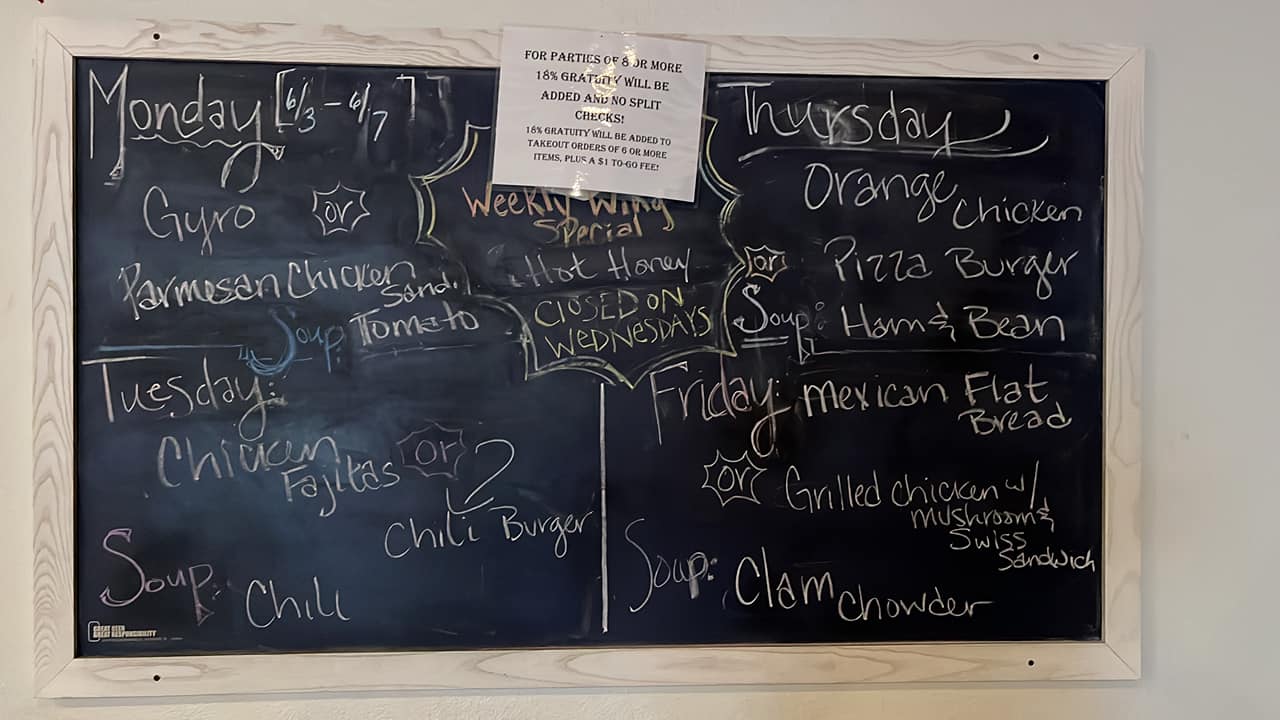 Monday [6/3 - 6/7]
Gyro or
Parmesan Chicken
Sand.
Soup: Tomato
Tuesday:
Chicken
Fajitas or
Chili Burger
Soup: Chili
GREAT BEER
GREAT RESPONSIBILITY
FOR PARTIES OF 8 OR MORE
18% GRATUITY WILL BE
ADDED AND NO SPLIT
CHECKS!
18% GRATUITY WILL BE ADDED TO
TAKEOUT ORDERS OF 6 OR MORE
ITEMS, PLUS A $1 TO-GO FEE!
Weekly Wing
Special
Hot Honey
CLOSED ON
WEDNESDAYS
Thursday
Orange
Chicken
or Pizza Burger
Soup: Ham & Bean
Friday: Mexican Flat
Bread
or Grilled Chicken w/
Mushroom &
Swiss
Sandwich
Soup: Clam
Chowder